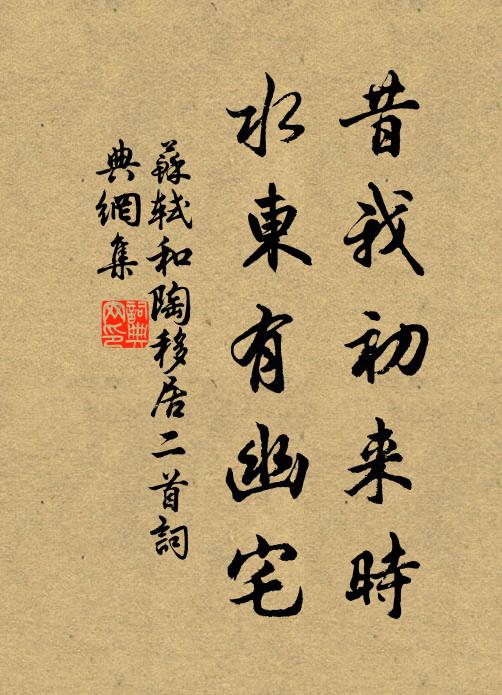 昔我初来時
水東有幽宅
蘇軾和陶移居二首詞
典網集
詞典
网印